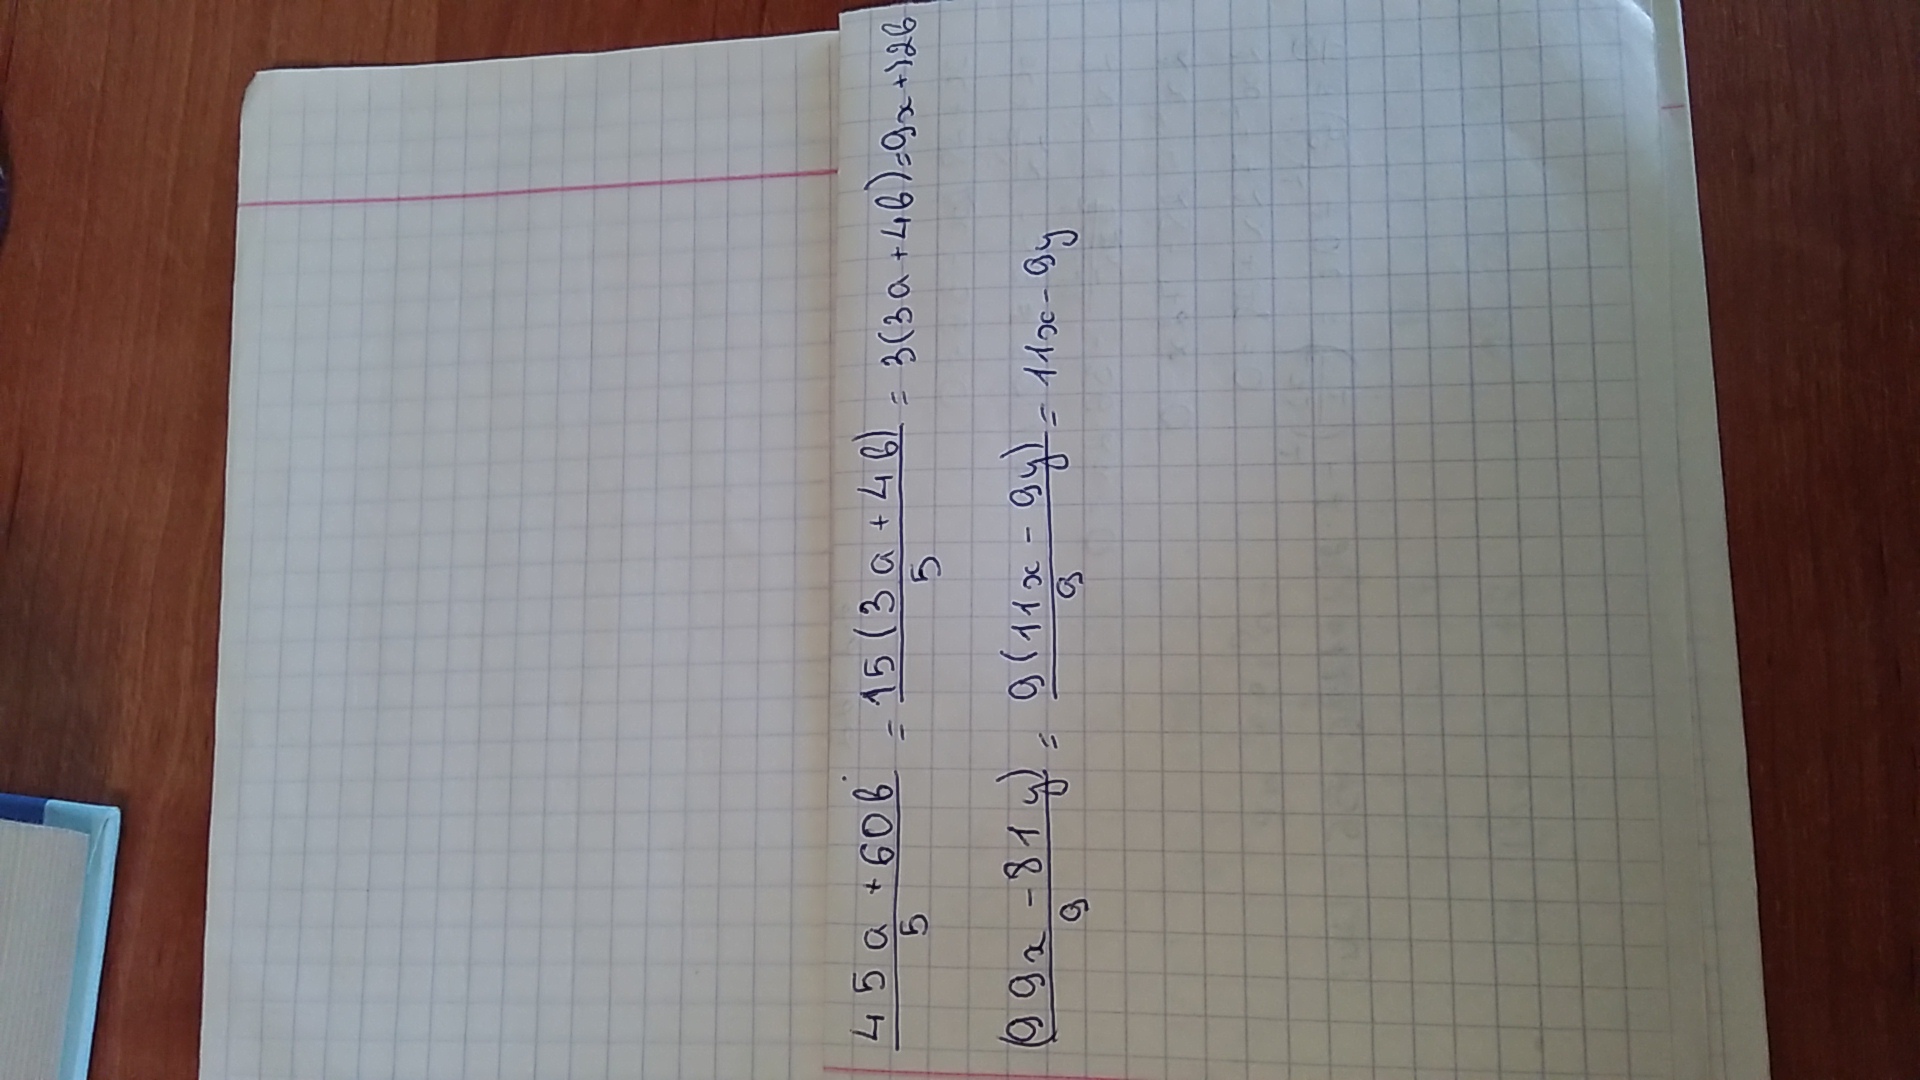 (45a+60b)/5 = 15(3a+4b)/5 = 3(3a+4b)=9x+12b
(99x-81y)/9 = 9(11x-9y)/9 = 11x-9y